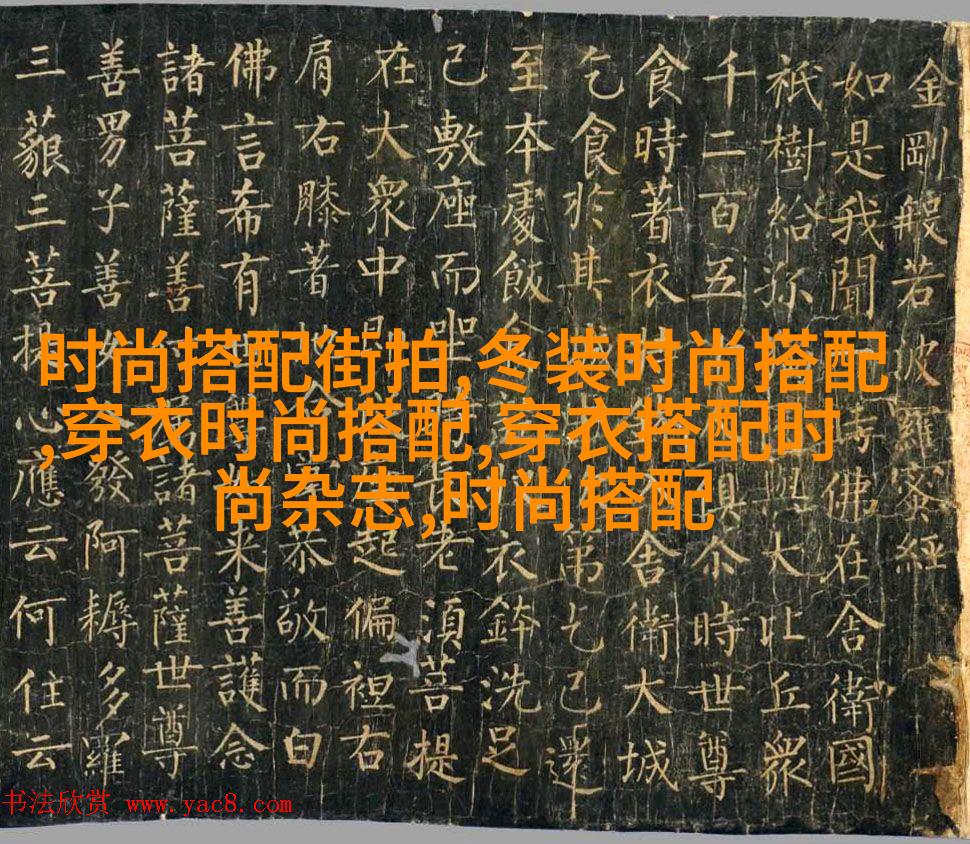 金剛般若波羅蜜經
如是我聞時佛在舍衛國
祇樹給孤與大比丘眾
千二百五俱尒時世尊
食時著衣舍衛大城
乞食於其第乞已還
至本處飯食衣鉢洗足
已敷座而坐長老須菩提
在大眾中起偏袒右
肩右膝著恭敬而白
佛言希有来善護念
諸菩薩善諸菩薩世尊
善男子善女發阿耨多羅
三藐三菩提心應云何住云
时尚搭配街拍,冬装时尚搭配
,穿衣时尚搭配,穿衣搭配时
尚杂志,时尚搭配
书法欣赏 www.yac8.com